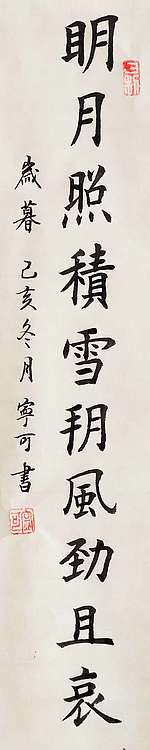 明月照積雪朔風勁且哀
歲暮 己亥冬月寧可書